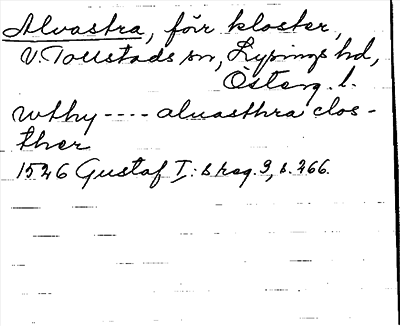 Alvastra, för kloster,
V. Tollstads sn, Lysings hd,
Österg. l.
wthy ---- aluasthra clos-
ther
1546 Gustaf I:s reg. 9, s. 266.